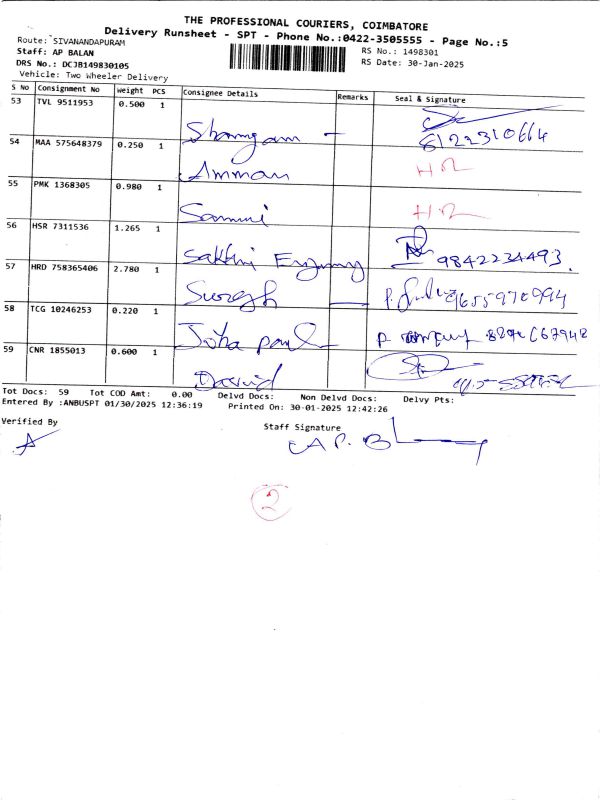 THE PROFESSIONAL COURIERS, COIMBATORE
Delivery Runsheet - SPT - Phone No.:0422-3505555 - Page No.:5
Route: SIVANANDAPURAM
Staff: AP BALAN RS No.: 1498301
DRS No.: DCJB149830105 RS Date: 30-Jan-2025
Vehicle: Two Wheeler Delivery
S No Consignment No Weight PCS Consignee Details Remarks Seal & Signature
53 TVL 9511953 0.500 1
8122310664
54 MAA 575648379 0.250 1
Amman H.R
55 PMK 1368305 0.980 1
H.R
56 HSR 7311536 1.265 1
Sakthi 9842234493.
57 HRD 758365406 2.780 1
Suresh 9655970994
58 TCG 10246253 0.220 1
Joha paul
59 CNR 1855013 0.600 1
David
Tot Docs: 59 Tot COD Amt: 0.00 Delvd Docs: Non Delvd Docs: Delvy Pts:
Entered By :ANBUSPT 01/30/2025 12:36:19 Printed On: 30-01-2025 12:42:26
Verified By Staff Signature
A.P. B
2